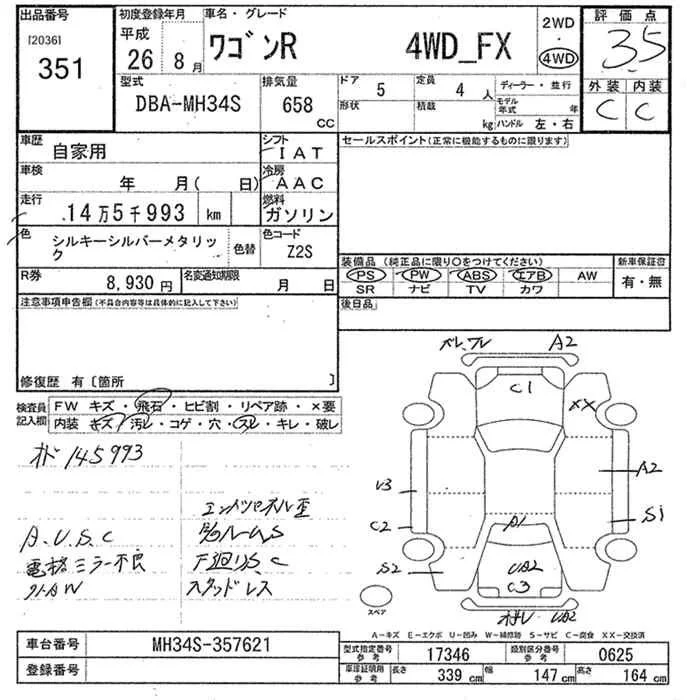 出品番号
[2036]
351
初度登録年月
平成
26 8月
車名・グレード
ワゴンR 4WD_FX
2WD
・
4WD
評価点
3.5
外装 内装
C C
型式
DBA-MH34S
排気量
658
CC
ドア 5
定員 4 人
形状
積載 kg
ディーラー・並行
モデル年式 年
ハンドル 左・右
車歴
自家用
シフト
IAT
車検
年 月( 日)
冷房
AAC
走行
14万5千993 km
燃料
ガソリン
色
シルキーシルバーメタリック
色替
色コード
Z2S
R券
8,930円
名変通知期限
月 日
セールスポイント(正常に機能するものに限ります)
装備品 (純正品に限り○をつけてください)
PS PW ABS エアB AW
SR ナビ TV カワ
新車保証書
有・無
後日品
注意事項申告欄(不具合内容等は具体的に記入して下さい)
修復歴 有〔箇所 〕
検査員記入欄
FW キズ・飛石・ヒビ割・リペア跡・×要
内装 キズ・汚レ・コゲ・穴・スレ・キレ・破レ
オド 145993
A.U.S.C
電格ミラー不良
エンドパネル歪
下廻りS.C
スタッドレス
A2
C1
XX
U3
C2
A2
S1
A1
S2
UA2
C3
UA2
スペア
A-キズ E-エクボ U-凹み W-補修跡 S-サビ C-腐食 XX-交換済
車台番号 MH34S-357621
登録番号
型式指定番号 参考 17346
類別区分番号 参考 0625
車庫証明用 参考 長さ 339 cm 幅 147 cm 高さ 164 cm